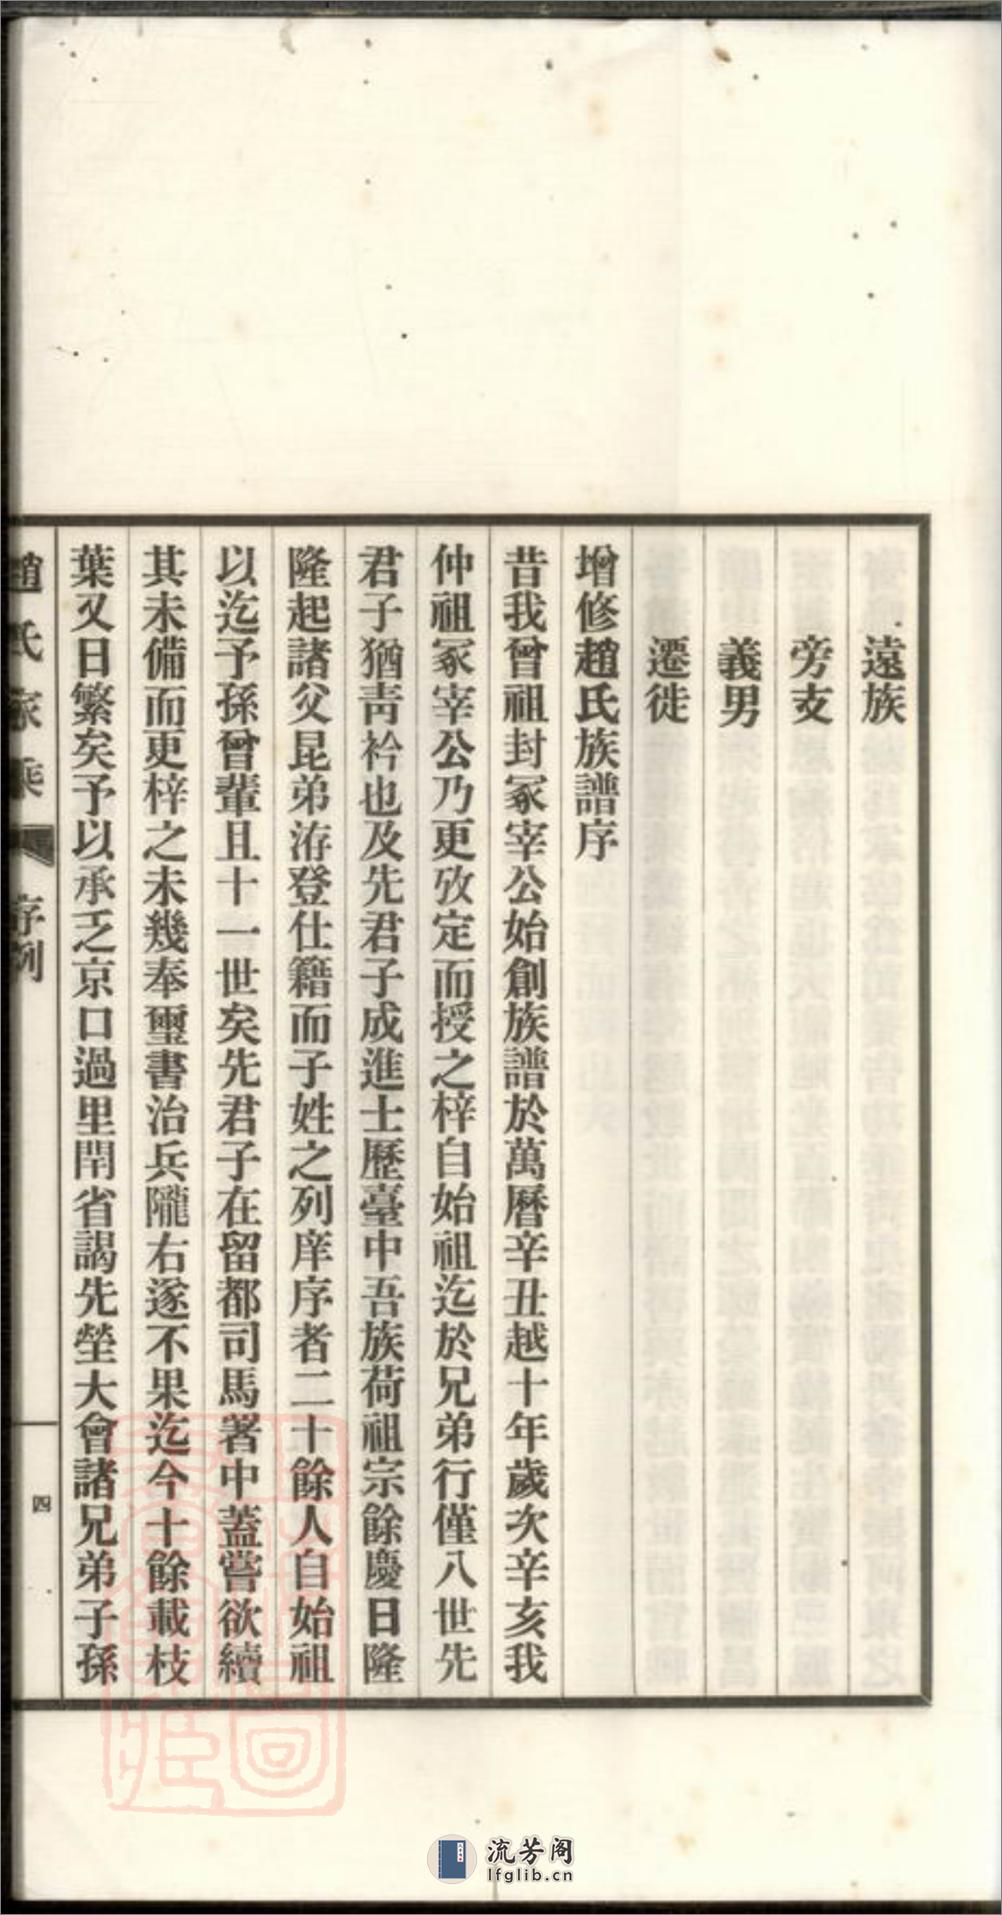 遠族
旁支
義男
遷徙
增修趙氏族譜序
昔我曾祖封冢宰公始創族譜於萬曆辛丑越十年歲次辛亥我
仲祖冢宰公乃更攷定而授之梓自始祖迄於兄弟行僅八世先
君子猶靑衿也及先君子成進士歷臺中吾族荷祖宗餘慶日隆
隆起諸父昆弟洊登仕籍而子姓之列庠序者二十餘人自始祖
以迄予孫曾輩且十一世矣先君子在留都司馬署中蓋嘗欲續
其未備而更梓之未幾奉璽書治兵隴右遂不果迄今十餘載枝
葉又日繁矣予以承乏京口過里閈省謁先塋大會諸兄弟子孫
趙氏家乘 序例 四
流芳阁
lfglib.cn